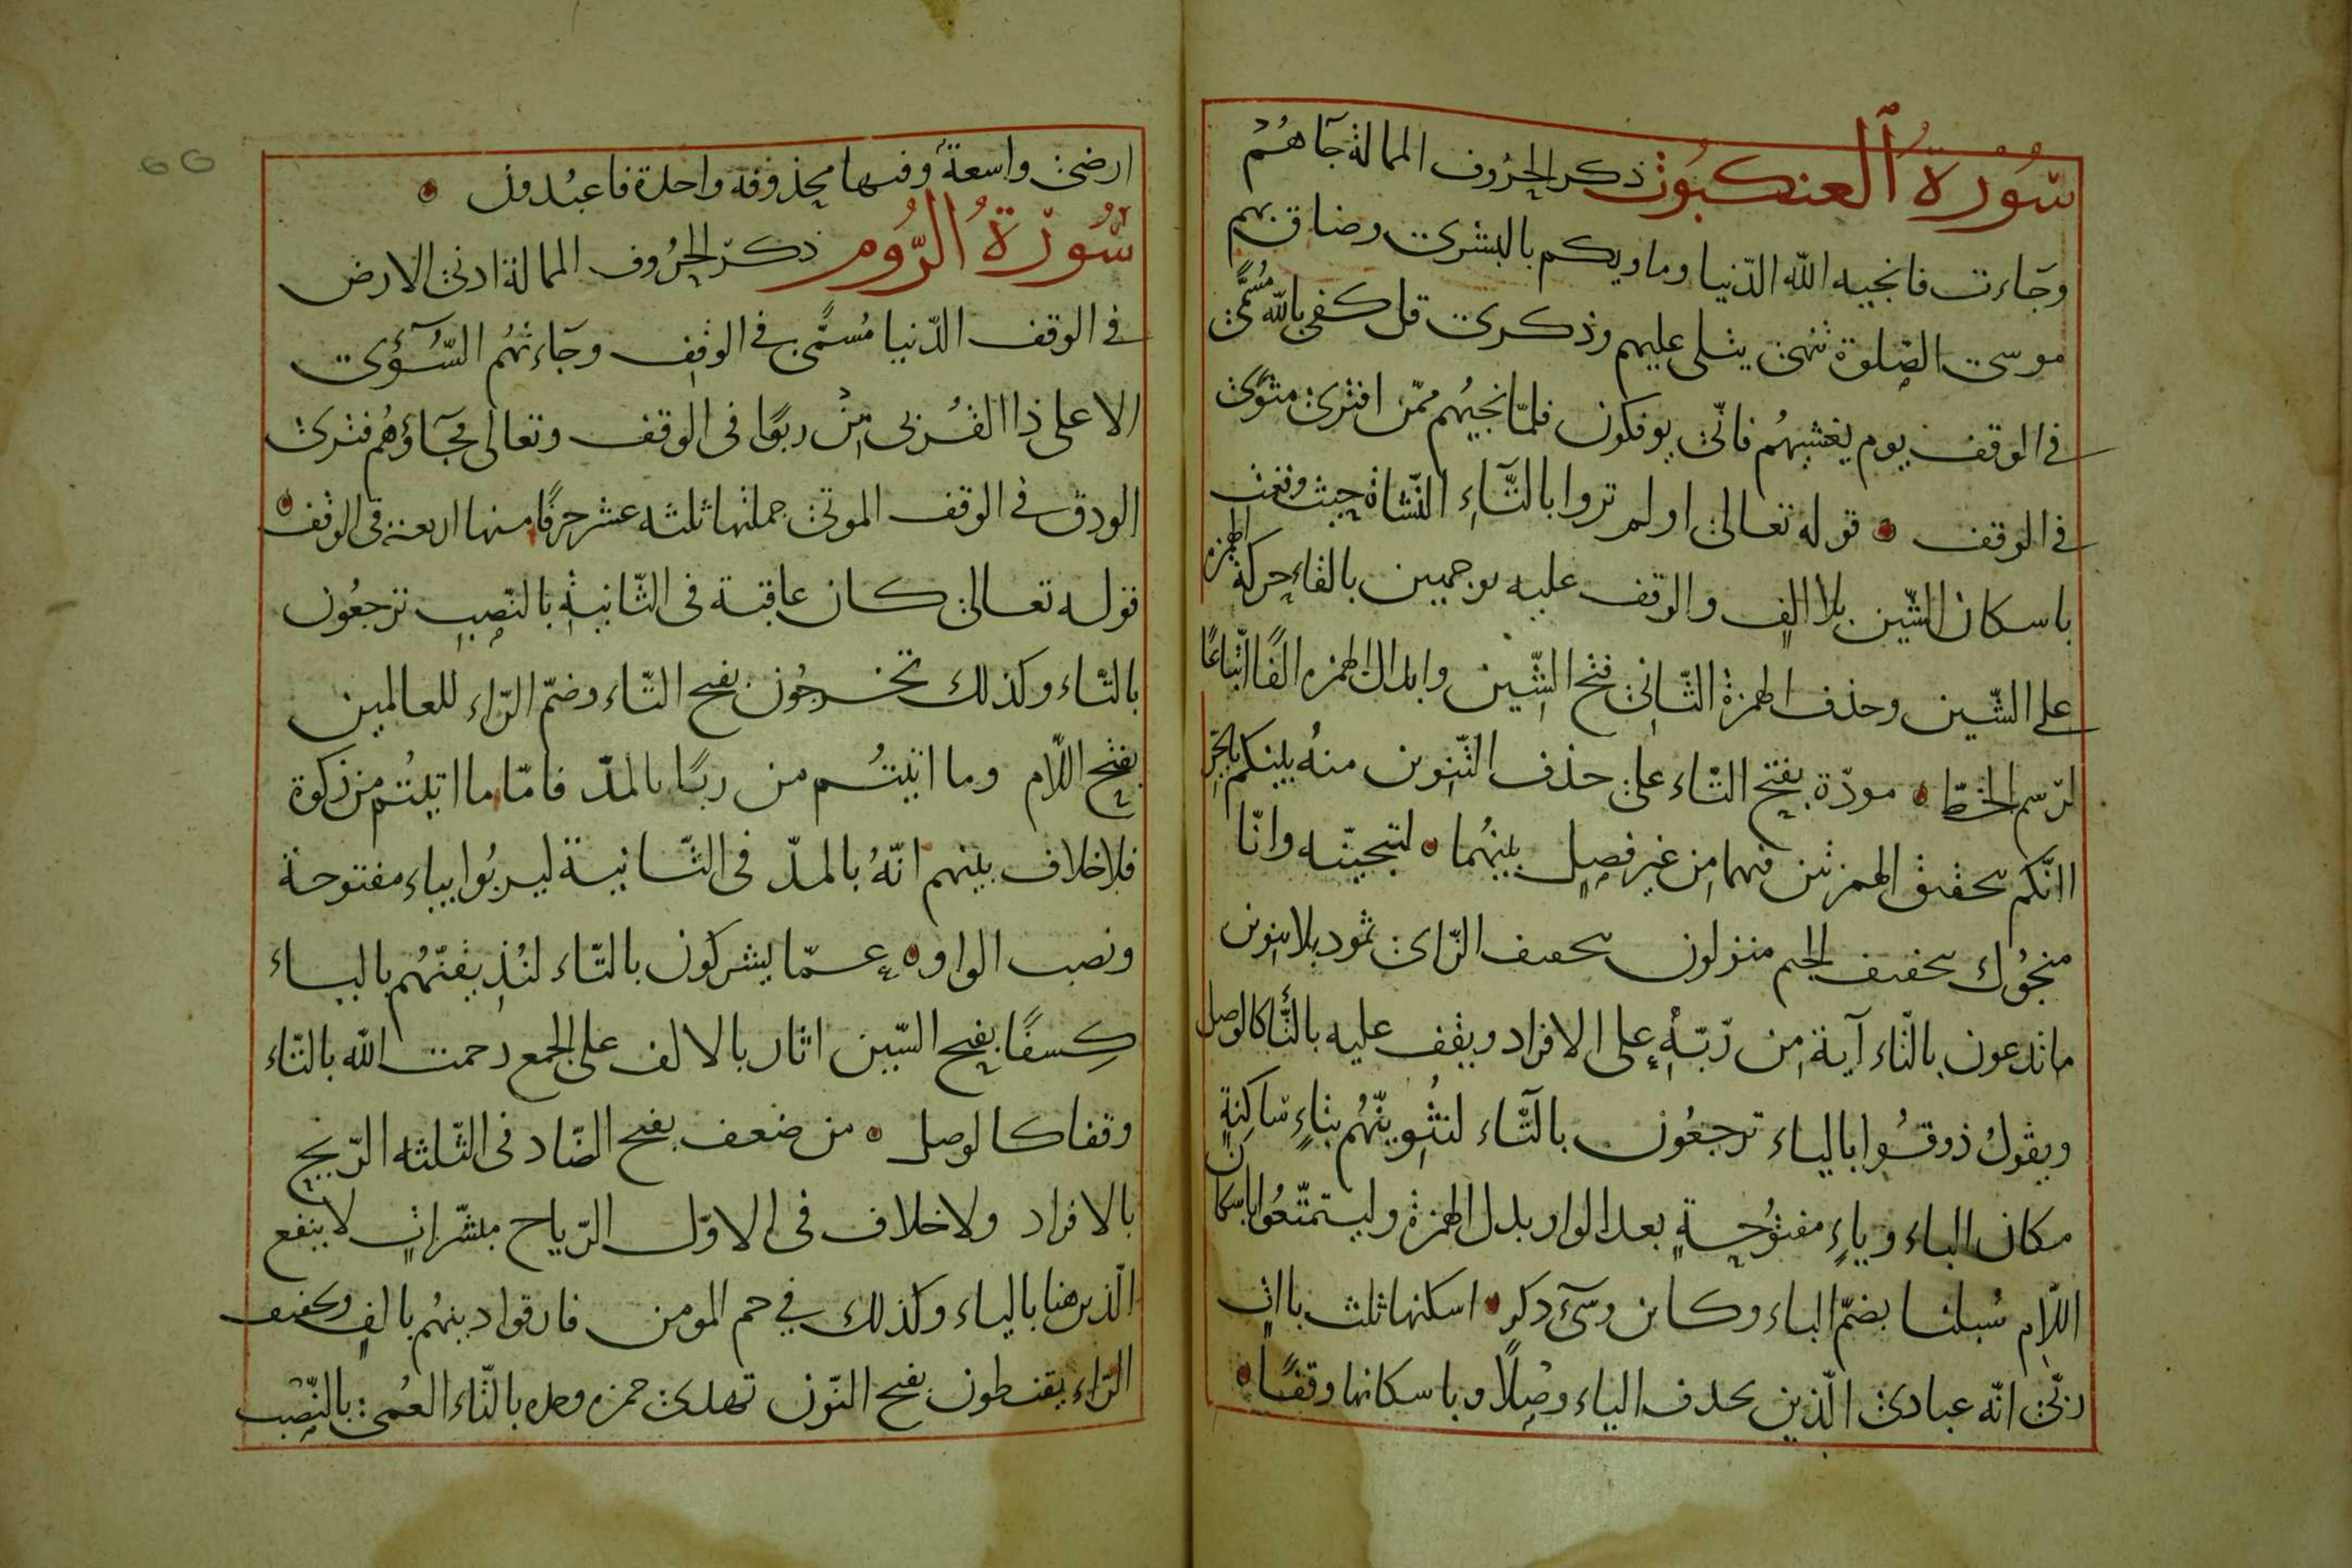 سُورَةُ ٱلعنكبُوت ذكر الحرُوف الممالة جَآهُمْ
وجَاءت فانجيه الله الدّنيا وماويكم بالبشرى وضاق بهم
موسى الصّلوة تنهى يتلى عليهم وذكرى قل كفى بالله مُسمًّى
فى الوقف يوم يغشيهُم فانّى يوفكون فلمّا نجيهُم ممّن افترى مثوًى
فى الوقف قوله تعالى اولم تروا بالتّاءِ النّشاة حيث وقعت
باسكان الشّين بلا الفٍ والوقف عليه بوجهين بالقاء حركة الهمزة
على الشّين وحذف الهمزة الثّانى فتح الشّين وابدال الهمزه الفًا اتّباعًا
لرّسم الخطّ مودّة بفتح التّاء على حذف التّنوين منهُ بينِكم بالجرّ
اانّكم بتحقيق الهمزتين فيهما من غير فصلٍ بينهُما لتنجينّه وانّا
منجوُك بتخفيف الجيم منزلون بتخفيف الزّاى ثمود بلا تنوين
ما تدعون بالتّاء آية مِن رّبّهٖ على الافراد ويقف عليه بالتّا كالوصل
ويقولُ ذوقُوا بالياء ترجعُون بالتّاء لنثوينّهُم بثاءٍ ساكنةٍ
مكان الباء وياءٍ مفتوُحةٍ بعد الواو بدل الهمزة وليتمتّعُوا باسكان
اللّام سُبلنا بضمّ الباء وكاين وسىٓء ذكر اسكنها ثلث يااتٍ
ربّى انّه عبادى الّذين بحذف الياء وصلًا وباسكانها وقفًا
ارضى واسعة وفيها محذوفة واحدة فاعبُدون
سُورَةُ الرُّوم ذكر الحرُوف الممالة ادنى الارض
فى الوقف الدّنيا مُسمًّى فى الوقف وجَاءتهُم السُّوٓأى
الاعلى ذا القُربى مِنْ ربوًا فى الوقف وتعالى فجَآؤهُم فترى
الودق فى الوقف الموتى جملتها ثلثه عشر حرفًا منها اربعة فى الوقف
قوله تعالى كان عاقبة فى الثّانية بالنّصب ترجعُون
بالتّاء وكذلك تخرجُون بفتح التّاء وضمّ الرّاء للعالمين
بفتح اللّام وما اتيتُم من ربًا بالمدّ فامّا ما اتيتُم من زكوة
فلا خلاف بينهم انّهُ بالمدّ فى الثّانية ليربُوا بياء مفتوحة
ونصب الواو عمّا يشركون بالتّاء لنُذيقنّهُم بالياء
كِسفًا بفتح السّين اثار بالالف على الجمع رحمت الله بالتّاء
وقفا كالوصل من ضعف بفتح الضّاد فى الثّلثه الرّيح
بالافراد ولا خلاف فى الاوّل الرّياح مبشّراتٍ لا ينفع
الّذين هنا بالياء وكذلك في حم المومن فارقوا دينهُم بالفٍ وتخفيف
الرّاء يقنطون بفتح النّون تهدى حمزه وحده بالتّاء العُمى بالنّصب